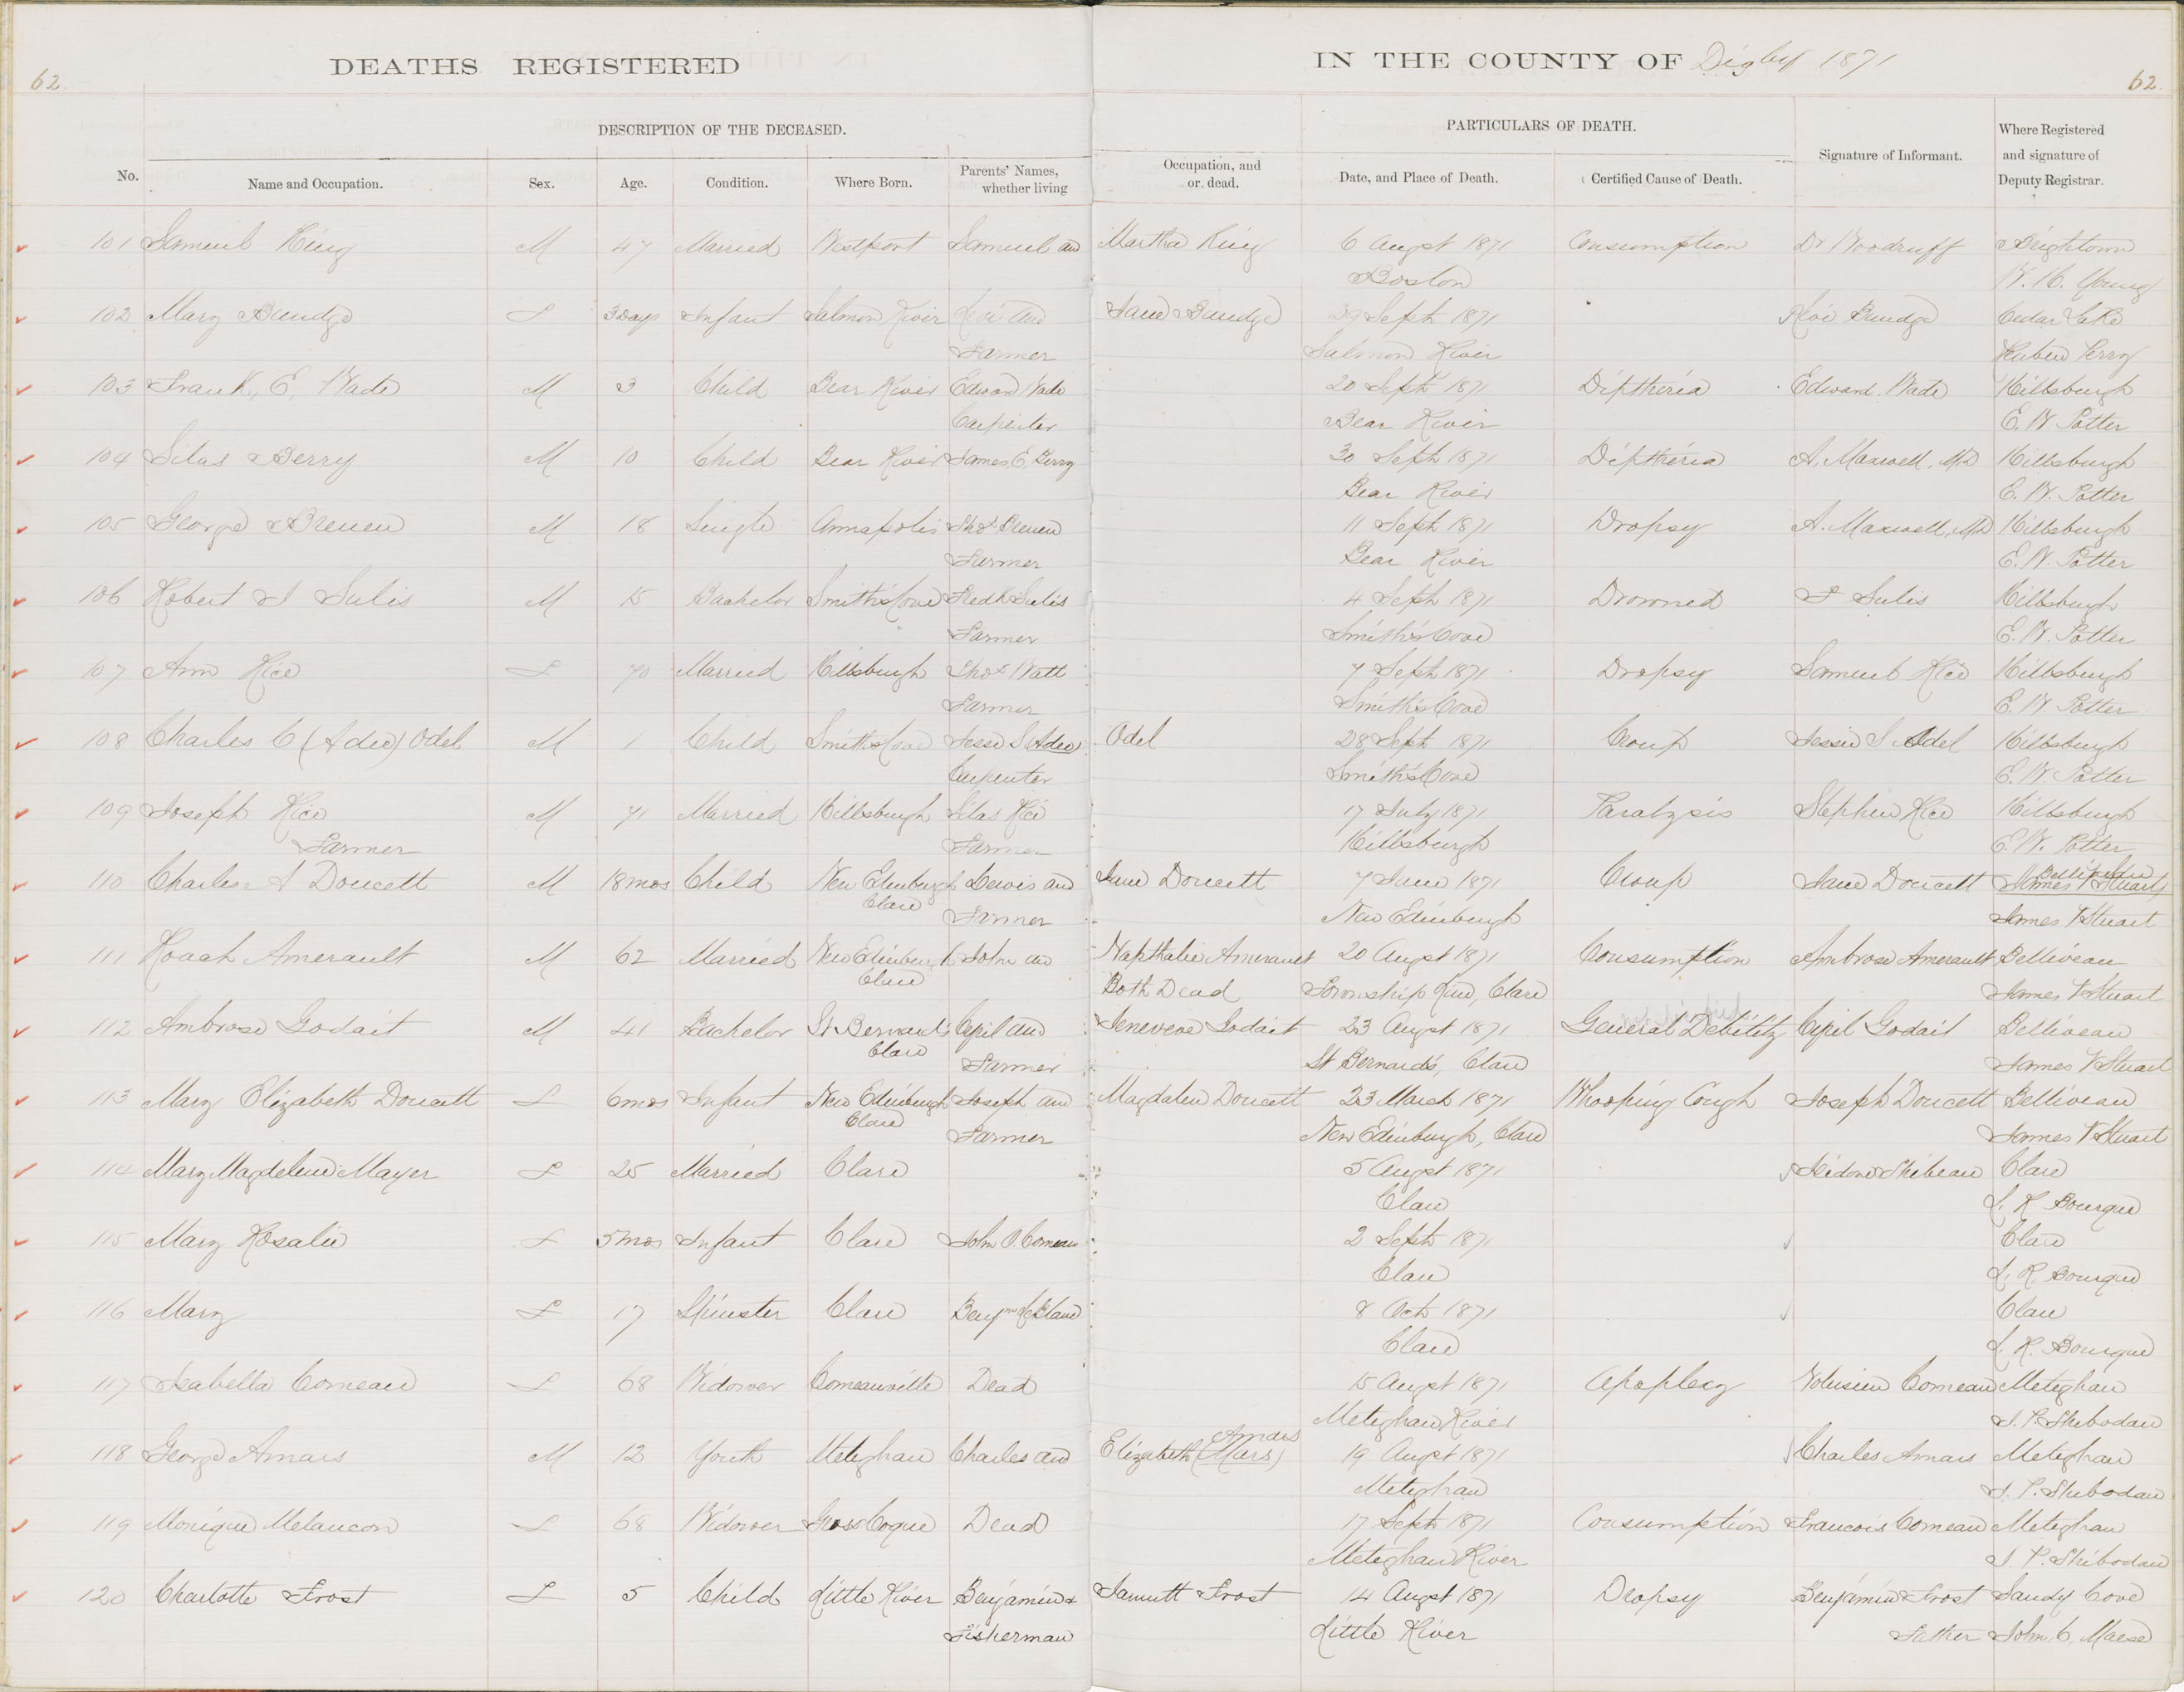 62
DEATHS REGISTERED
IN THE COUNTY OF Digby 1871
62
DESCRIPTION OF THE DECEASED.
PARTICULARS OF DEATH.
No.
Name and Occupation.
Sex.
Age.
Condition.
Where Born.
Parents' Names, whether living
Occupation, and or dead.
Date, and Place of Death.
Certified Cause of Death.
Signature of Informant.
Where Registered and signature of Deputy Registrar.
101 Samuel King M 47 Married Westport Samuel and Martha King 6 Augst 1871 Consumption Dr Woodruff Brightown
Boston W. H. Young
102 Mary Bundge F 3 Days Infant Salmon River Levi and Jane Bundge 29 Sept 1871 Levi Bundge Cedar Lake
Farmer Salmon River Huben Perry
103 Frank, E, Wade M 3 Child Bear River Edward Wade 20 Sept 1871 Diptheria Edward Wade Hillsburgh
Carpenter Bear River E. W. Potter
104 Silas Berry M 10 Child Bear River James E. Berry 30 Sept 1871 Diptheria A. Maxwell, MD Hillsburgh
Bear River E. W. Potter
105 George Breuen M 18 Single Annapolis Thos Breuen 11 Sept 1871 Dropsy A. Maxwell, MD Hillsburgh
Farmer Bear River E. W. Potter
106 Robert I Sulis M 15 Bachelor Smith's Cove Fredk Sulis 4 Sept 1871 Drowned F Sulis Hillsburgh
Farmer Smith's Cove E. W. Potter
107 Ann Rice F 70 Married Hillsburgh Thos Watt 7 Sept 1871 Dropsy Samuel Rice Hillsburgh
Farmer Smith's Cove E. W Potter
108 Charles C (Adee) Odel M 1 Child Smiths Cove Jesse S Adee Odel 28 Sept 1871 Croup Jessie S Odel Hillsburgh
Carpenter Smith's Cove E. W. Potter
109 Joseph Rice M 71 Married Hillsburgh Silas Rice 17 July 1871 Paralysis Stephen Rice Hillsburgh
Farmer Farmer Hillsburgh E. W. Potter
110 Charles A Doucett M 18 mos Child New Edinburgh Lewis and Jane Doucett 7 June 1871 Croup Jane Doucett Belliveau James V Stuart
Clare Farmer New Edinburgh James V Stuart
111 Roach Amerault M 62 Married New Edinburgh John and Napthalie Amerault 20 Augst 1871 Consumption Ambrose Amerault Belliveau
Clare Both Dead Township Line, Clare James V Stuart
112 Ambrose Godait M 41 Bachelor St Bernard's Cyril and Geneveve Godait 23 Augst 1871 General Debility Cyril Godait Belliveau
Clare Farmer St Bernard's, Clare James V Stuart
113 Mary Elizabeth Doucett F 6 mos Infant New Edinburgh Joseph and Magdalen Doucett 23 March 1871 Whooping Cough Joseph Doucett Belliveau
Clare Farmer New Edinburgh, Clare James V Stuart
114 Mary Magdelene Mayer F 25 Married Clare 5 Augst 1871 Isidore Thibeau Clare
Clare L. R Bourque
115 Mary Rosalie F 5 mos Infant Clare John P. Comeau 2 Sept 1871 Clare
Clare L. R. Bourque
116 Mary F 17 Spinster Clare Benjmn LeBlanc 8 Oct 1871 Clare
Clare L. R. Bourque
117 Isabella Comeau F 68 Widower Comeauville Dead 15 Augst 1871 Apoplexy Volusien Comeau Meteghan
Meteghan River J. P. Thibodau
118 George Amars M 12 Youth Meteghan Charles and Elizabeth (Mars) Amars 19 Augst 1871 Charles Amars Meteghan
Meteghan J. P. Thibodau
119 Monique Melancon F 68 Widower Gross Coque Dead 17 Sept 1871 Consumption Francois Comeau Meteghan
Meteghan River J. P. Thibodau
120 Charlotte Frost F 5 Child Little River Benjamin & Frost 14 Augst 1871 Dropsy Benjamin Frost Sandy Cove
Fisherman Little River Father John C. Morse